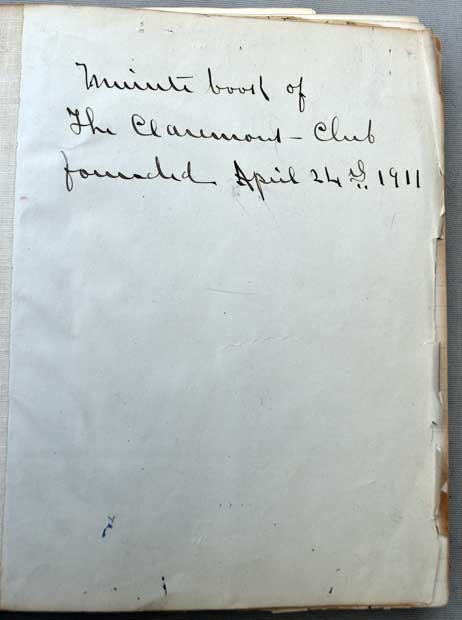 Minute book of
The Claremont - Club
founded April 24th 1911